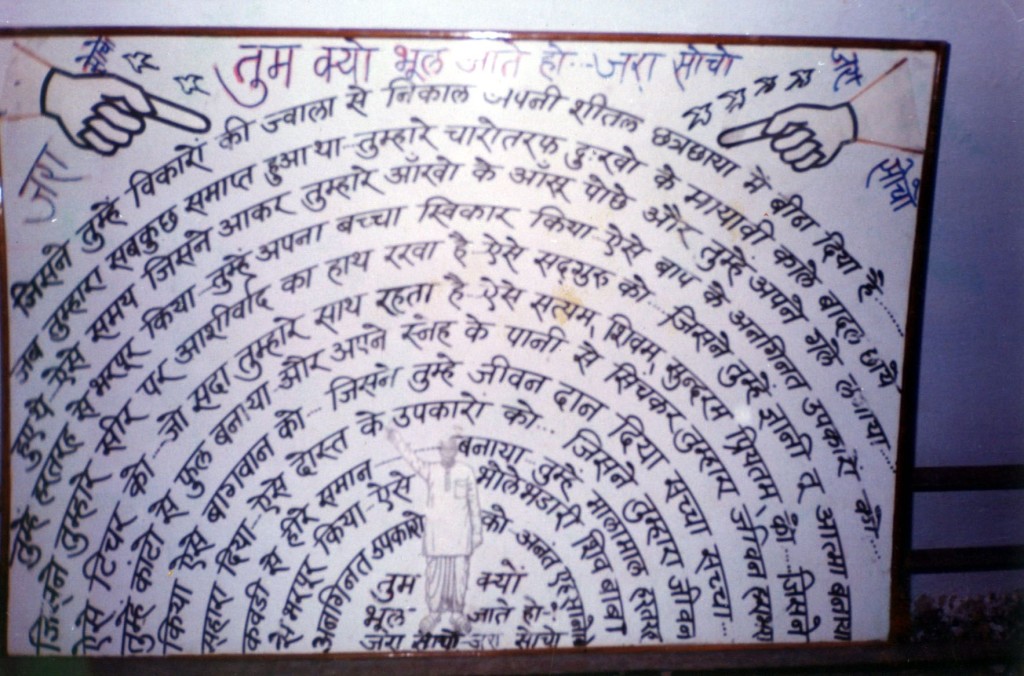 तुम क्यो भूल जाते हो---जरा सोचो
जरा सोचो
जरा सोचो
जिसने तुम्हें विकारों की ज्वाला से निकाल अपनी शीतल छत्रछाया में बीठा दिया है...
जब तुम्हारा सबकुछ समाप्त हुआ था--तुम्हारे चारोतरफ दुःखो के मायावी काले बादल छाये
हुए थे--ऐसे समय जिसने आकर तुम्हारे आँखो के आँसू पोछे और तुम्हें अपने गले लगाया...
तुम्हें हरतरह से भरपूर किया--तुम्हें अपना बच्चा स्विकार किया--ऐसे बाप के अनगिनत उपकारों को...
जिसने तुम्हारे सीर पर आशीर्वाद का हाथ रखा है--ऐसे सद्गुरु को...जिसने तुम्हें ज्ञानी तू आत्मा बनाया
ऐसे टिचर को...जो सदा तुम्हारे साथ रहता है--ऐसे सत्यम्, शिवम्, सुन्दरम् प्रियतम् को...जिसने
तुम्हे काटो से फुल बनाया--और अपने स्नेह के पानी से सिचकर तुम्हारा जीवन
किया ऐसे बागवान को...जिसने तुम्हे जीवन दान दिया सच्चा सच्चा...
सहारा दिया--ऐसे दोस्त के उपकारो को... जिसने तुम्हारा जीवन
कवडी से हीरे समान बनाया--तुम्हें मालामाल हरतरह
से भरपूर किया--ऐसे भोलेभंडारी शिव बाबा
अनगिनत उपकारो को अनंत एहसानो
तुम क्यों
भूल जाते हो:
जरा सोचो जरा सोचो